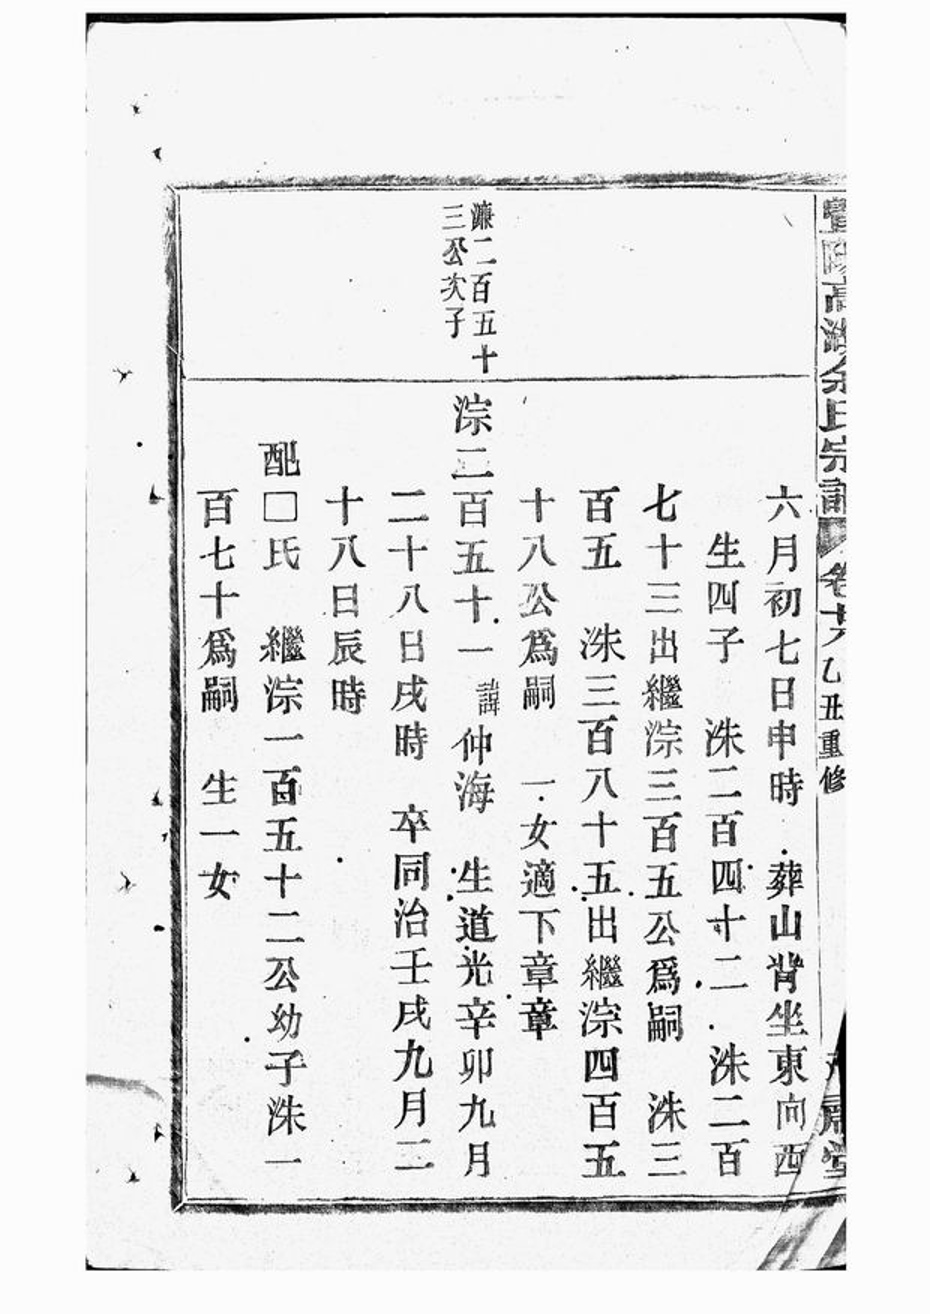 暨陽高湖余氏宗譜 卷十六 乙丑重修
六月初七日申時 葬山背坐東向西
生四子 洙二百四十二 洙二百
七十三出繼淙三百五公爲嗣 洙三
百五 洙三百八十五出繼淙四百五
十八公爲嗣 一女適下章章
濂二百五十
三公次子
淙二百五十一 諱仲海 生道光辛卯九月
二十八日戌時 卒同治壬戌九月二
十八日辰時
配□氏 繼淙一百五十二公幼子洙一
百七十爲嗣 生一女